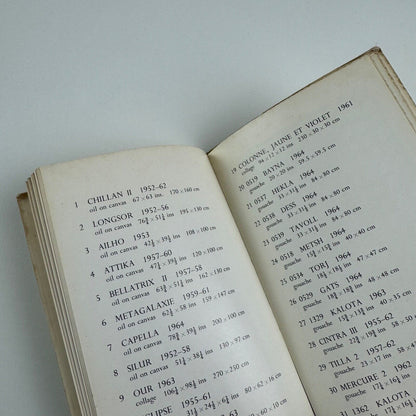 1 CHILLAN II 1952–62
oil on canvas 67 × 63 ins. 170 × 160 cm
2 LONGSOR 1952–56
oil on canvas 76¾ × 51¼ ins 195 × 130 cm
3 AILHO 1953
oil on canvas 42½ × 39½ ins 108 × 100 cm
4 ATTIKA 1957–60
oil on canvas 47¼ × 39½ ins 120 × 100 cm
5 BELLATRIX II 1957–58
oil on canvas 63¾ × 51¼ ins 162 × 130 cm
6 METAGALAXIE 1959–61
oil on canvas 62½ × 58 ins 159 × 147 cm
7 CAPELLA 1964
oil on canvas
8 SILUR 1952–58
oil on canvas 51¼ × 38¼ ins 130 × 97 cm
9 OUR 1963
collage 106¼ × 98½ ins 270 × 250 cm
ECLIPSE 1955–61
ins 80 × 62 × 16 cm
19 COLONNE, JAUNE ET VIOLET 1961
collage 94 × 12 × 12 ins 230 × 30 × 30 cm
20 0519 BAYNA 1964
gouache 20 × 20 ins 59.5 × 59.5 cm
21 0537 HEKLA 1964
gouache 13 × 31¼ ins 34 × 80 cm
22 0538 DESS 1964
gouache 33 × 31¼ ins 84 × 80 cm
23 0539 TAVOLL 1964
gouache 33 × 31¼ ins 84 × 80 cm
24 0518 METSH 1964
gouache 18½ × 15¾ ins 40 × 40 cm
25 0534 TORJ 1964
gouache 18½ × 18½ ins 47 × 47 cm
26 0529 GATS 1964
gouache 15¾ × 13¾ ins 40 × 35 cm
27 1329 KALOTA 1963
gouache
28 CINTRA III 1955–62
gouache
29 TILLA 2 1957–62
gouache
30 MERCURE 2 1962
gouache
1362 KALOTA